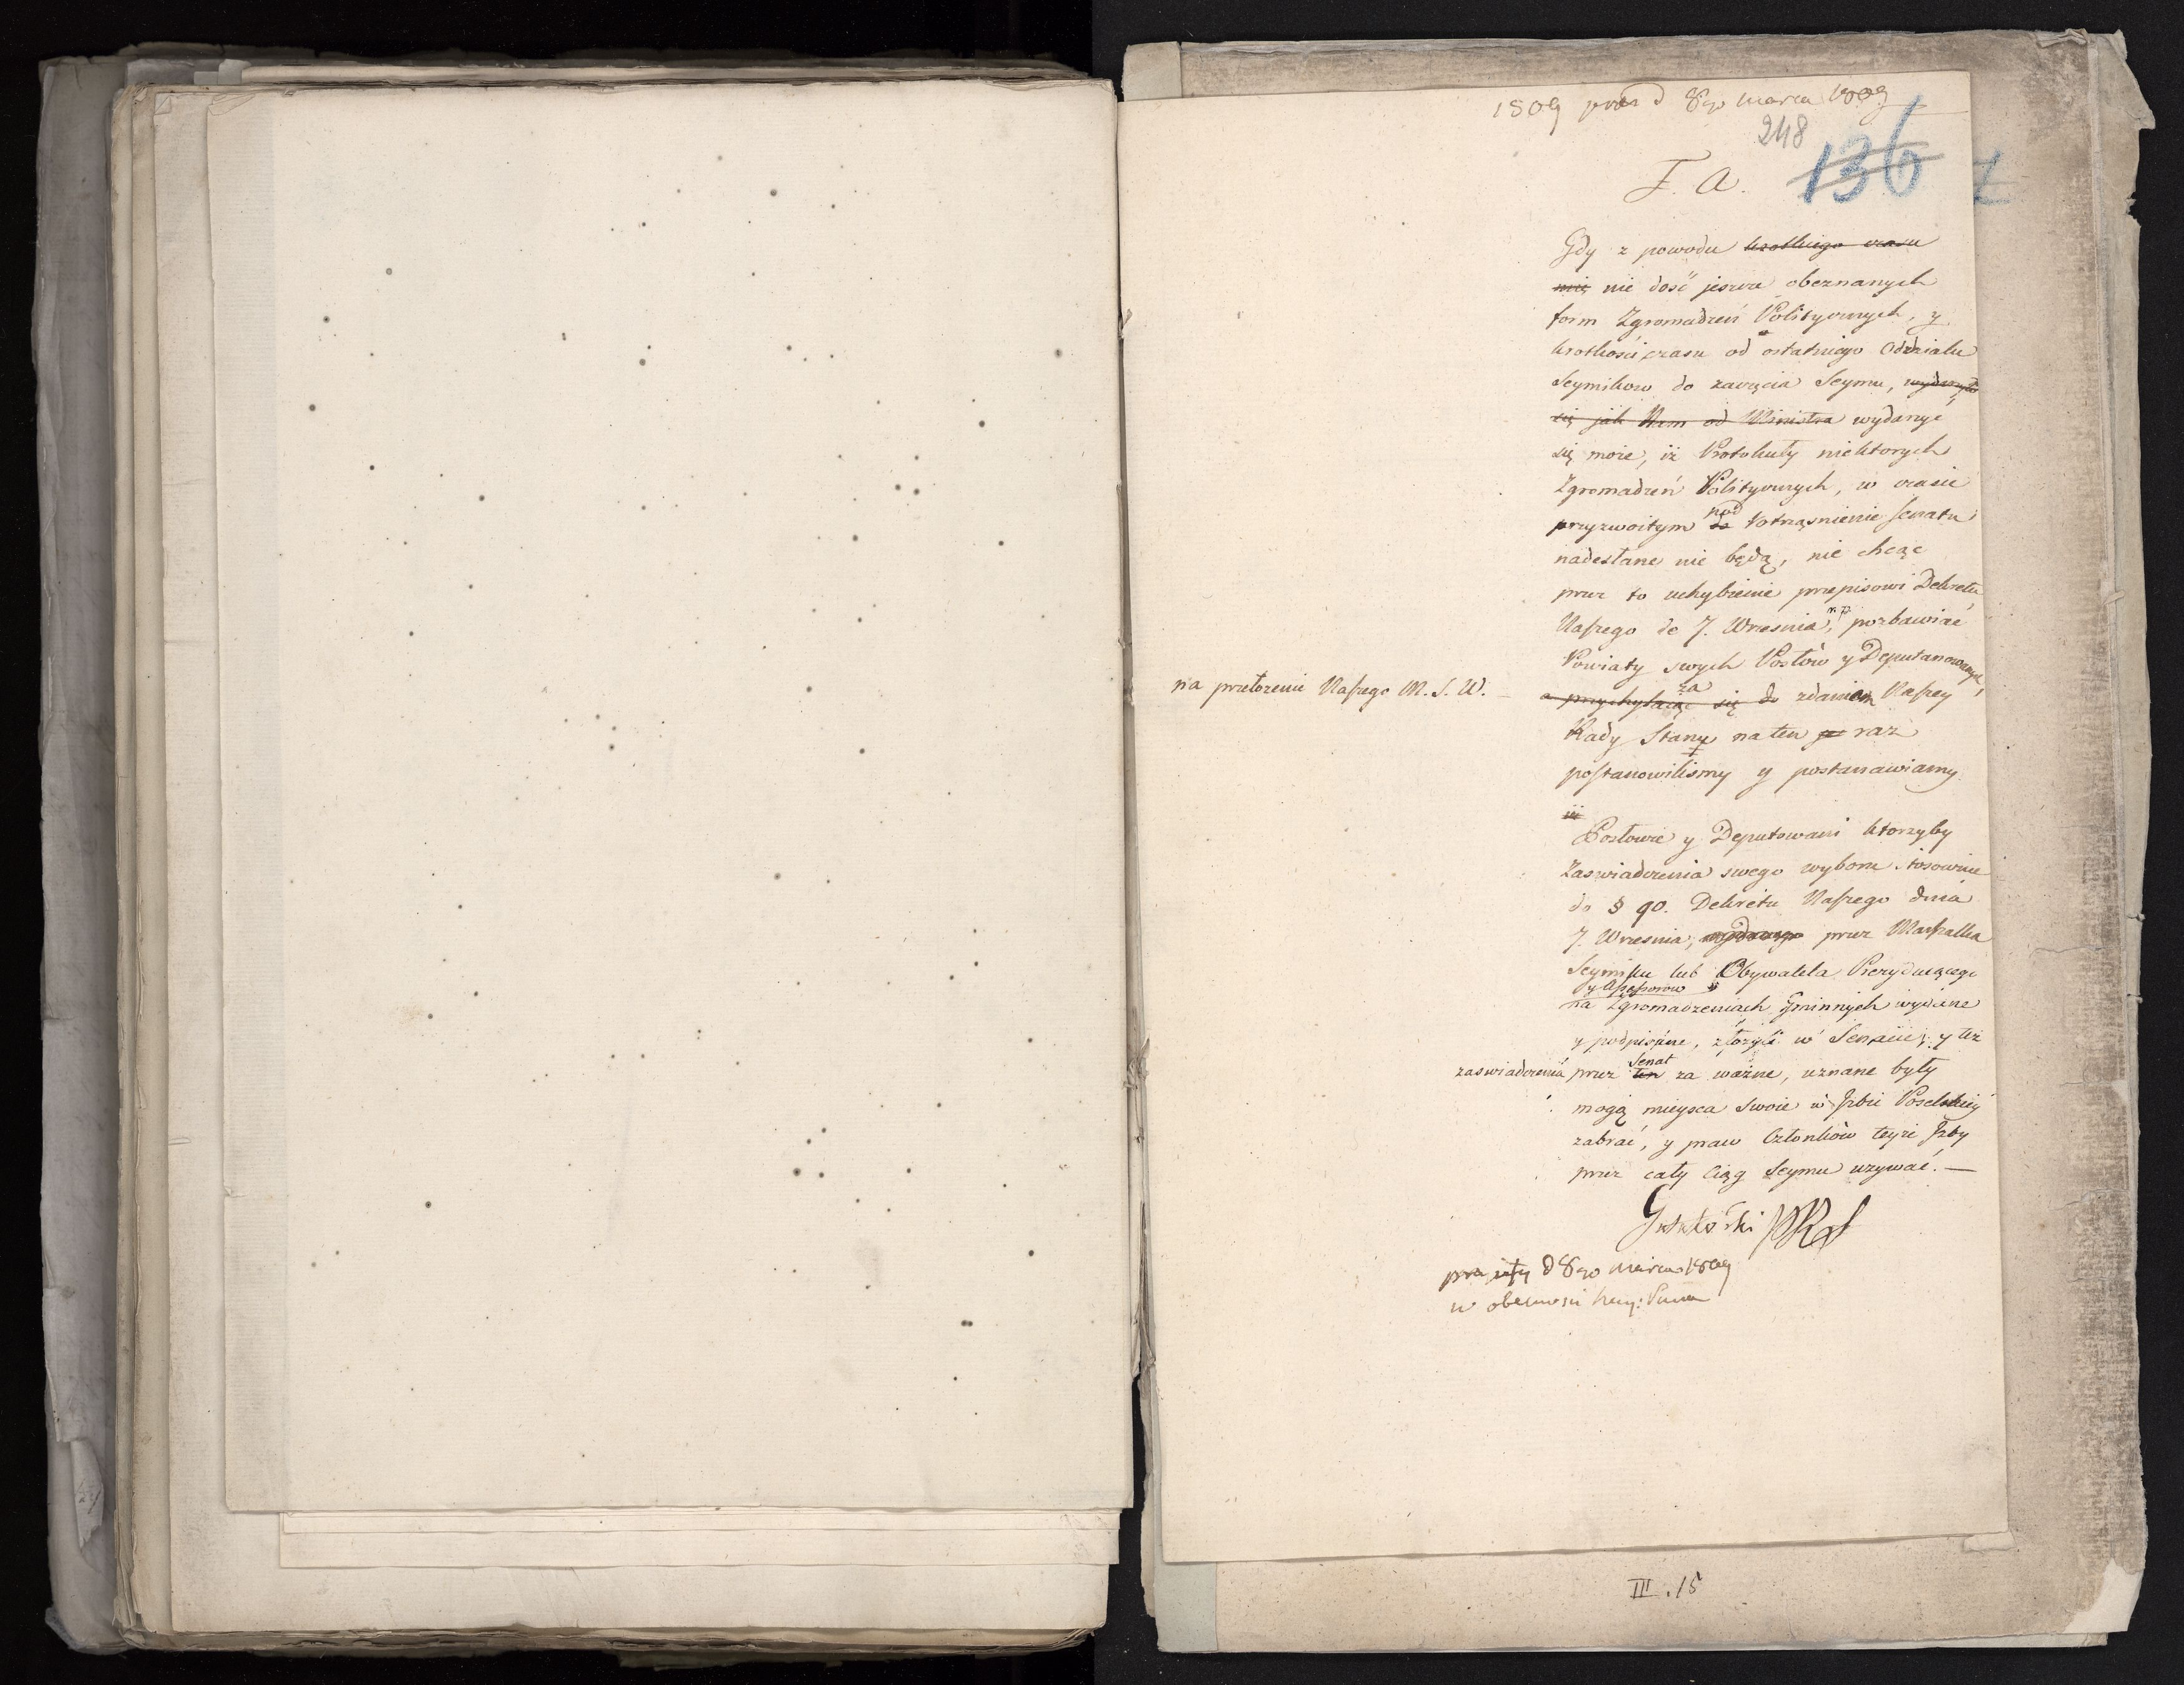 1809 prod d 8go marca 1809
248
136
F. A.
Gdy z powodu krotkiego czasu
nie dość jeszcze obeznanych
form Zgromadzeń Politycznych, y
krotkości czasu od ostatniego Oddziału
Seymikow do zaczęcia Seymu,
się jak Nam od Ministra wydarzyć
się może, iż Protokuły niektorych
Zgromadzeń Politycznych, w czasie
przyzwoitym do pod Roztrząsnienie Senatu
nadesłane nie będą, nie chcąc
przez to uchybienie przepisowi Dekretu
Naszego de 7. Wrzesnia, pozbawiać
Powiaty swych Posłów y Deputanowanych,
na przełożenie Naszego M. S. W. a przychylaiąc się do za zdaniem Naszey
Rady Stanu na ten raz
postanowiliśmy y postanawiamy
iż
Posłowie y Deputowani ktorzyby
Zaswiadczenia swego wyboru stosownie
do § 90. Dekretu Naszego dnia
7. Wrzesnia, przez Marszałka
Seymiku lub Obywatela Prezyduiącego
y Assessorow
na Zgromadzeniach Gminnych wydane
y podpisane, złożyli w Senacie, y też
zaswiadczenia przez ten Senat za ważne, uznane były
mogą mieysca swoie w Izbie Poselskiey
zabrać, y praw Członków teyże Izby
przez cały Ciąg Seymu używać. —
Gutakowski PRS
przyięty d 8go marca 1809
w obecności
III.15